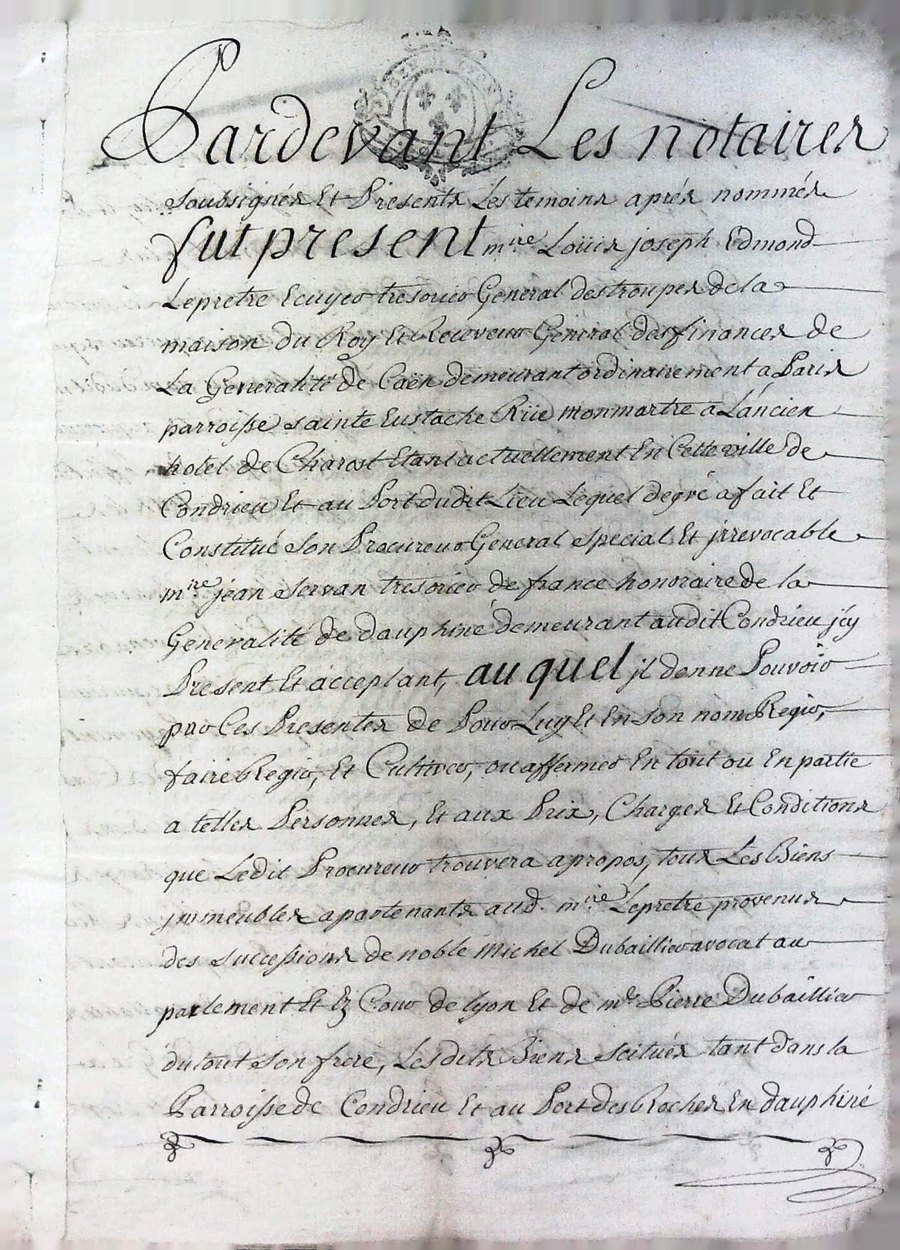 Pardevant Les notaires
soubsignés Et Presents Les temoins aprés nommés
fut present mire Loüis joseph Edmond
Lepretre Ecuyer tresorier General des troupes de la
maison du Roy Et Receveur General des finances de
La Generalité de Caën demeurant ordinairement a Paris
parroisse sainte Eustache Rüe monmartre a Lancien
hotel de Charost Etant actuellement En Cette ville de
Condrieu Et au Port dudit Lieu Lequel de gré a fait Et
Constitué son Procureur General special Et jrrevocable
mire jean servan tresorier de france honoraire de la
Generalité de dauphiné demeurant audit Condrieu jcy
Present Et acceptant, auquel jl donne Pouvoir
par Ces Presentes de Pour Luy Et En son nom Regir,
faire Regir, Et Cultiver, ou affermer En tout ou En partie
a telles Personnes, Et aux Prix, Charges Et Conditions
que Ledit Procureur trouvera apropos, tous Les Biens
jmmeubles apartenants aud. mire Lepretre provenus
des successions de noble Michel Dubaillier avocat au
parlement Et Cour de lyon Et de me Pierre Dubaillier
dutout son frere, Lesdits Biens scitués tant dans la
Parroisse de Condrieu Et au Port des Roches En dauphiné